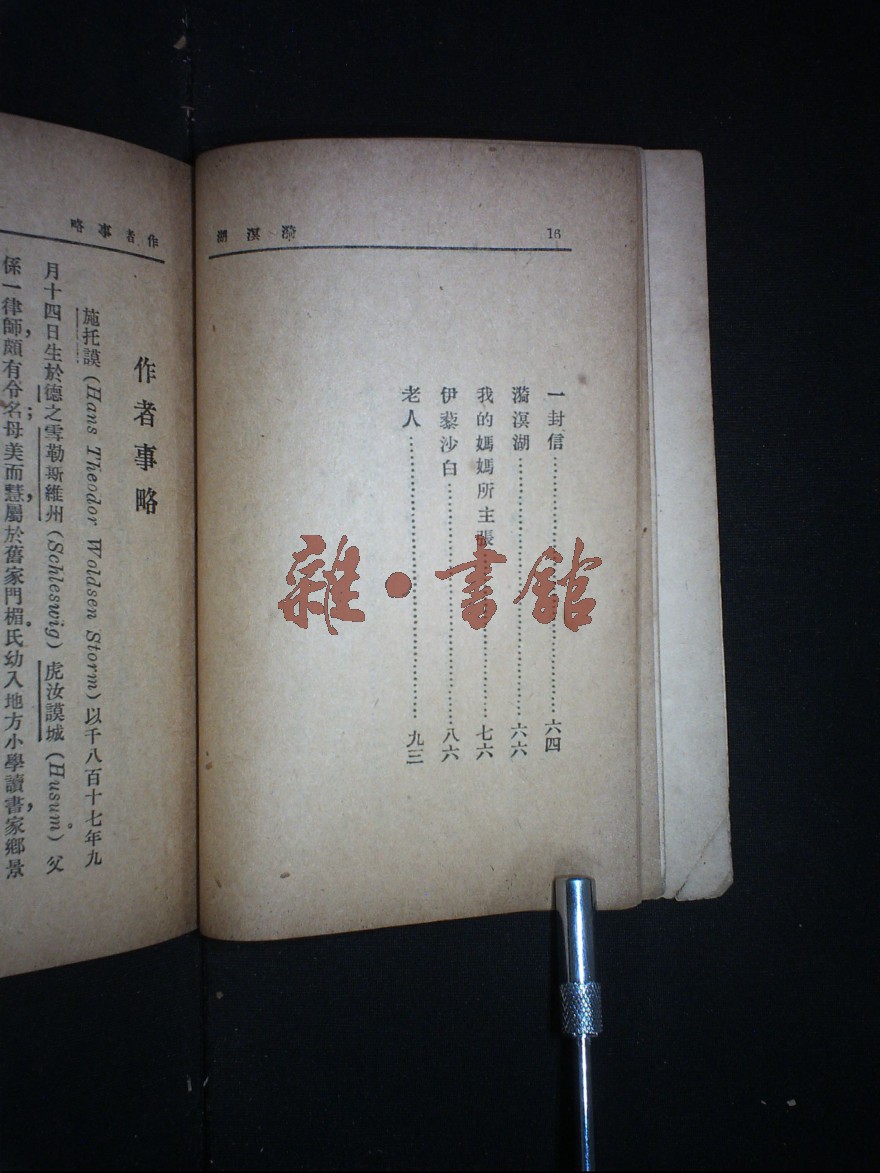 16
漪溟湖
一封信……六四
漪溟湖……六六
我的媽媽所主張……七六
伊藜沙白……八六
老人……九三
雜·書館
作者事略
作者事略
施托謨(Hans Theodor Woldsen Storm)以千八百十七年九
月十四日生於德之雪勒斯維州(Schleswig)虎汝謨城(Husum)。父
係一律師，頗有令名；母美而慧，屬於舊家門楣。氏幼入地方小學讀書，家鄉景